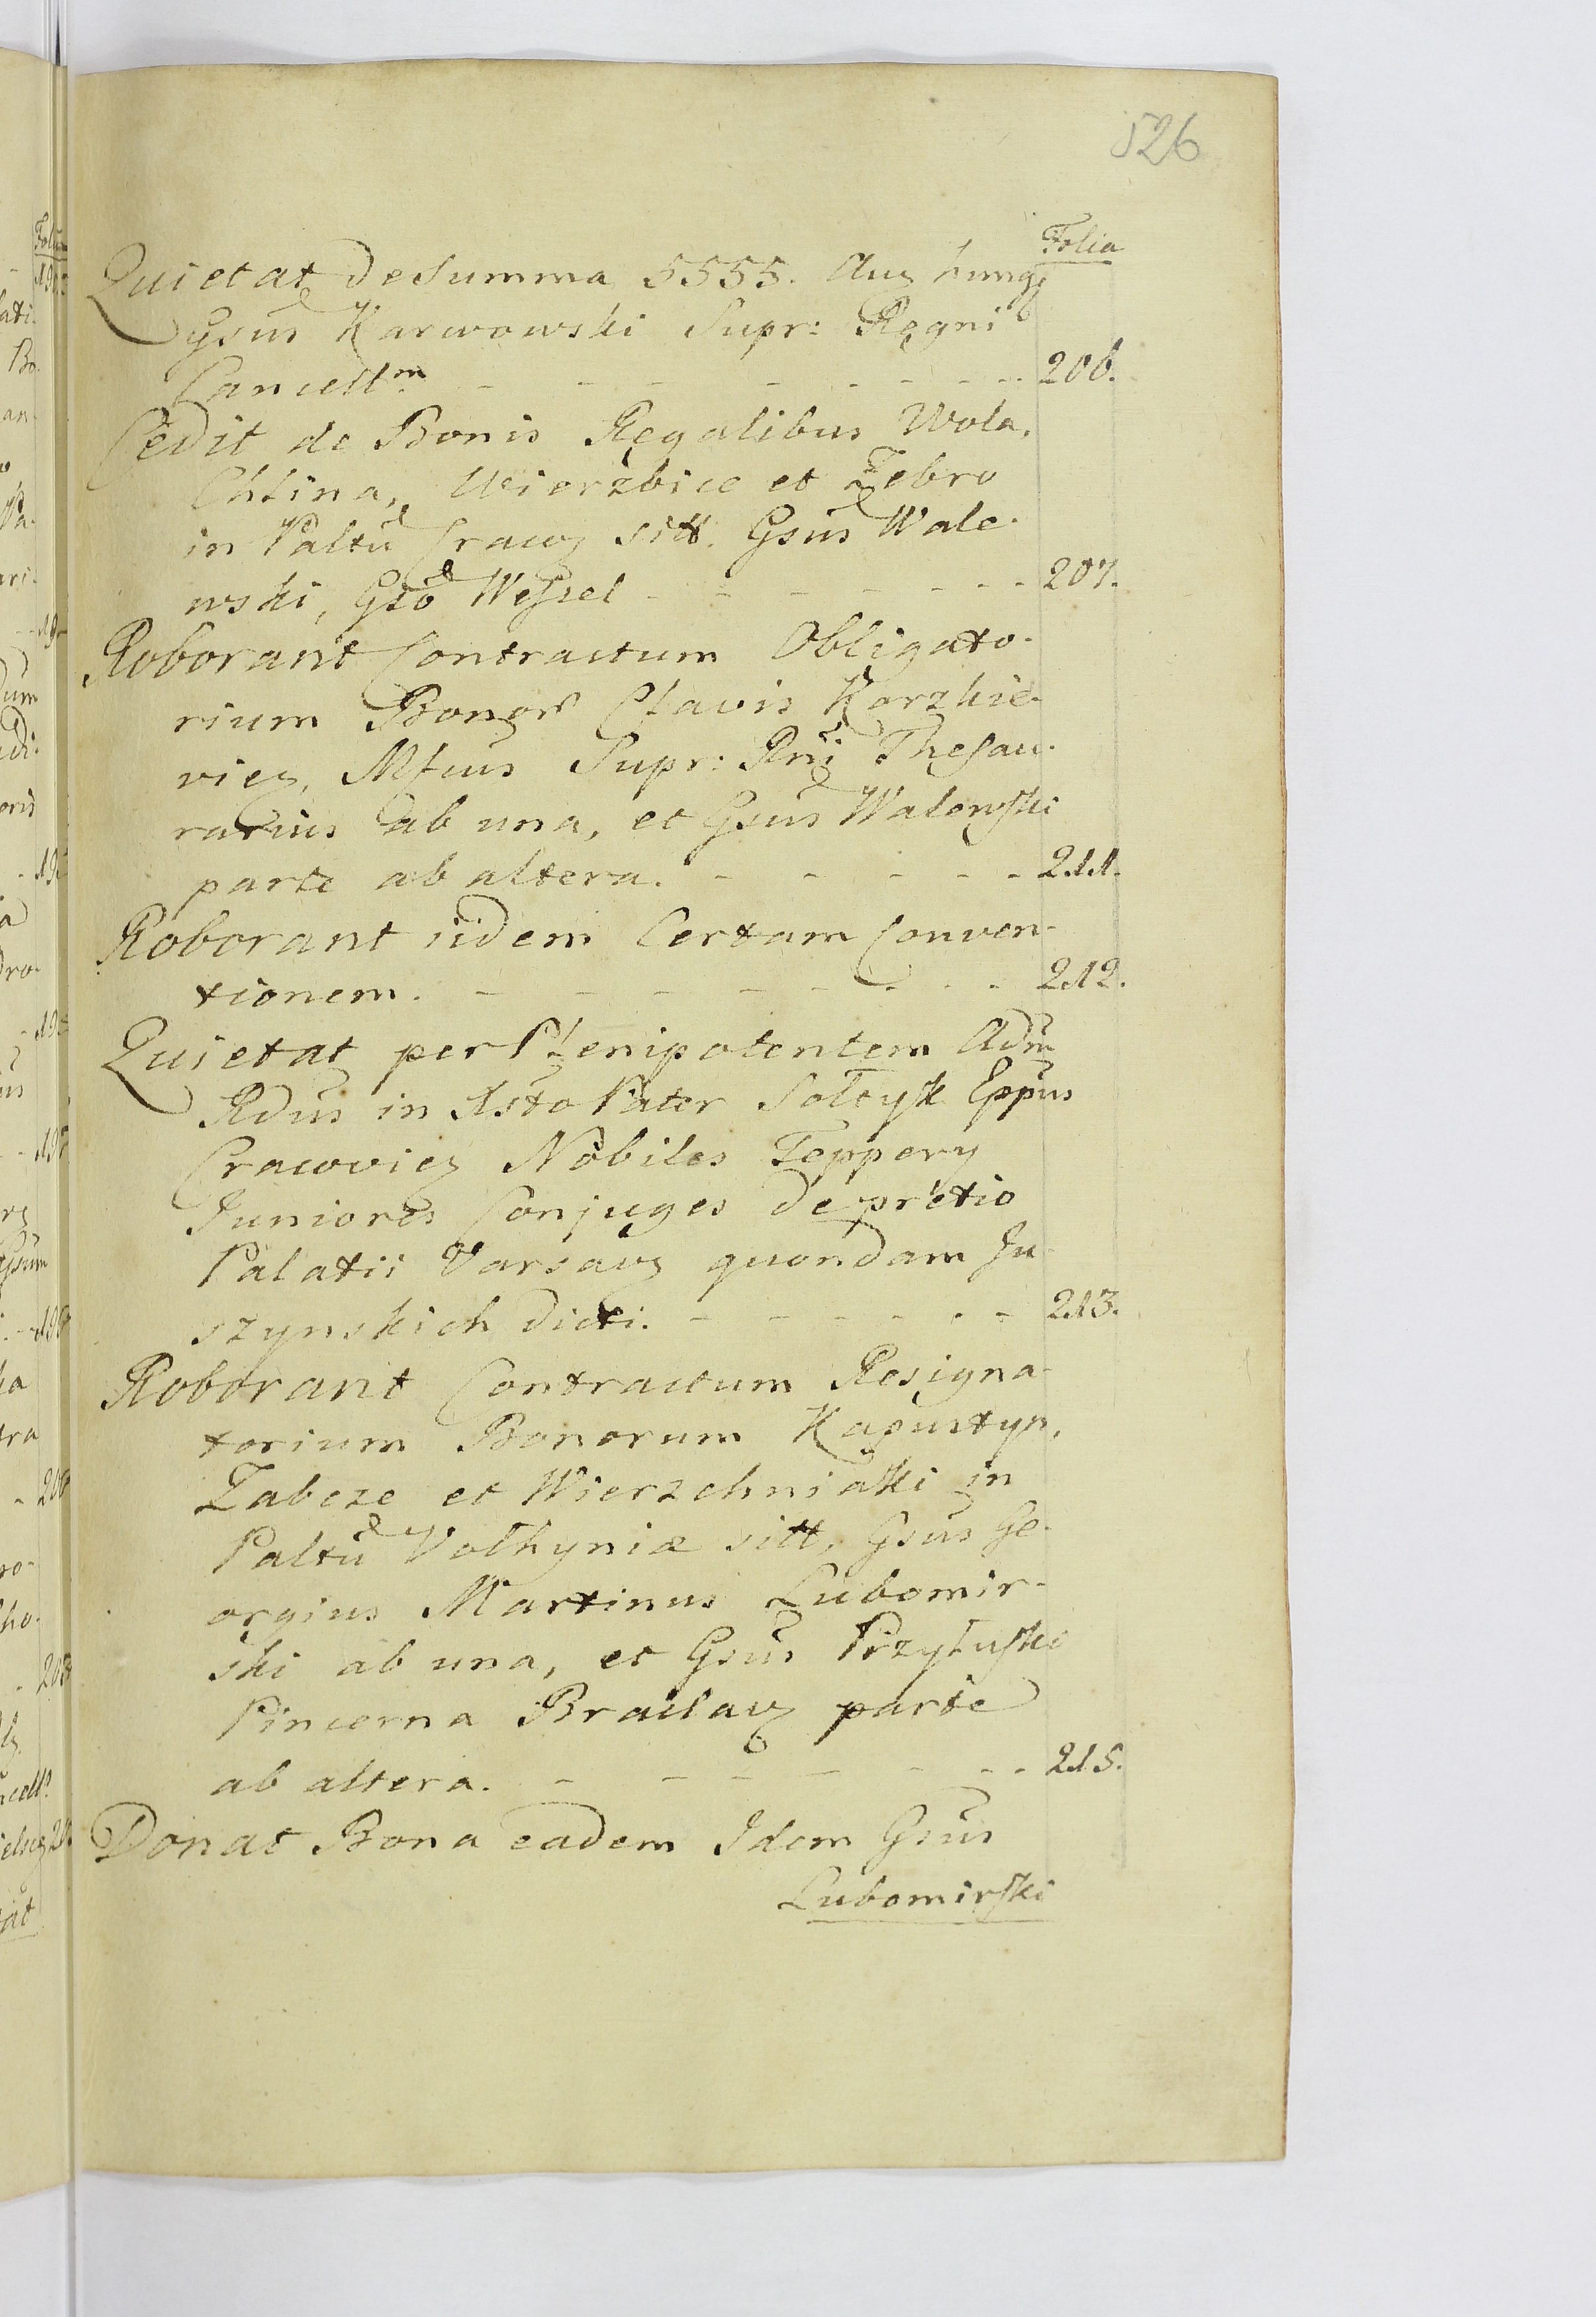 526
Folia
Quietat de Summa 5555. Aur hung
Gsus Karwowski Supr: Regni
Cancellm - - - - - - - 206.
Cedit de Bonis Regalibus Wola,
Chlina, Wierzbice et Zebro
in Paltu Cracov sitt. Gsus Wale-
wski, Gso Wessel - - - - - - 207.
Roborant Contractum Obligato-
rium Bonor Clavis Korzkie-
vien, Mfcus Supr: Rni Thesau-
rarius ab una, et Gsus Walewski
parte ab altera. - - - - - 211.
Roborant iidem Certam Conven-
tionem. - - - - - - - 212.
Quietat per Plenipotentem Adm
Rdus in Xsto Pater Sołtyk Eppus
Cracovien Nobiles Teppery
Juniores Conjuges de pretio
Palatii Varsav quondam Ju-
szynskich dicti. - - - - - - 213.
Roborant Contractum Resigna-
torium Bonorum Kapustyn,
Zabcze et Wierzchniaki in
Paltu Volhyniæ sitt, Gsus Ge-
orgius Martinus Lubomir-
ski ab una, et Gsus Przyłuski
Pincerna Braclav parte
ab altera. - - - - - - - 215.
Donat Bona eadem Idem Gsus
Lubomirski